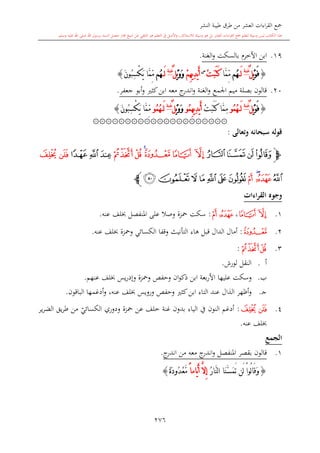 جمع القراءات العشر من طرق طيبة النشر
١٩. ابن الأخرم بالسكت والغنة.
﴿ فَوَيْلٌ لَّهُم مِّمَّا كَتَبَتْ أَيْدِيهِمْ وَوَيْلٌ لَّهُم مِّمَّا يَكْسِبُونَ ﴾
٢٠. قالون بصلة ميم الجمع والغنة واندرج معه ابن كثير وأبو جعفر.
﴿ فَوَيْلٌ لَّهُمُو مِّمَّا كَتَبَتْ أَيْدِيهِمُو وَوَيْلٌ لَّهُمُو مِّمَّا يَكْسِبُونَ ﴾
قوله سبحانه وتعالى :
﴿ وَقَالُوا۟ لَن تَمَسَّنَا ٱلنَّارُ إِلَّآ أَيَّامًا مَّعْدُودَةً قُلْ أَتَّخَذْتُمْ عِندَ ٱللَّهِ عَهْدًا فَلَن يُخْلِفَ
ٱللَّهُ عَهْدَهُۥٓ أَمْ تَقُولُونَ عَلَى ٱللَّهِ مَا لَا تَعْلَمُونَ ﴿٨٠﴾ ﴾
وجوه القراءات
١. إِلَّآ أَيَّامًا، عَهْدَهُۥٓ أَمْ : سكت حمزة وصلا على المنفصل بخلف عنه.
٢. مَّعْدُودَةً : أمال الدال قبل هاء التأنيث وقفا الكسائي وحمزة بخلف عنه.
٣. قُلْ أَتَّخَذْتُمْ :
أ . النقل لورش.
ب. وسكت عليها الأربعة ابن ذكوان وحفص وحمزة وإدريس بخلف عنهم.
جـ. وأظهر الذال عند التاء ابن كثير وحفص ورويس بخلف عنه، وأدغمها الباقون.
٤. فَلَن يُخْلِفَ : أدغم النون في الياء بدون غنة خلف عن حمزة ودوري الكسائيّ من طريق الضرير
بخلف عنه.
الجمع
١. قالون بقصر المنفصل واندرج معه من اندرج.
﴿ وَقَالُوا۟ لَن تَمَسَّنَا ٱلنَّارُ إِلَّآ أَيَّامًا مَّعْدُودَةً ﴾
٢٧٦